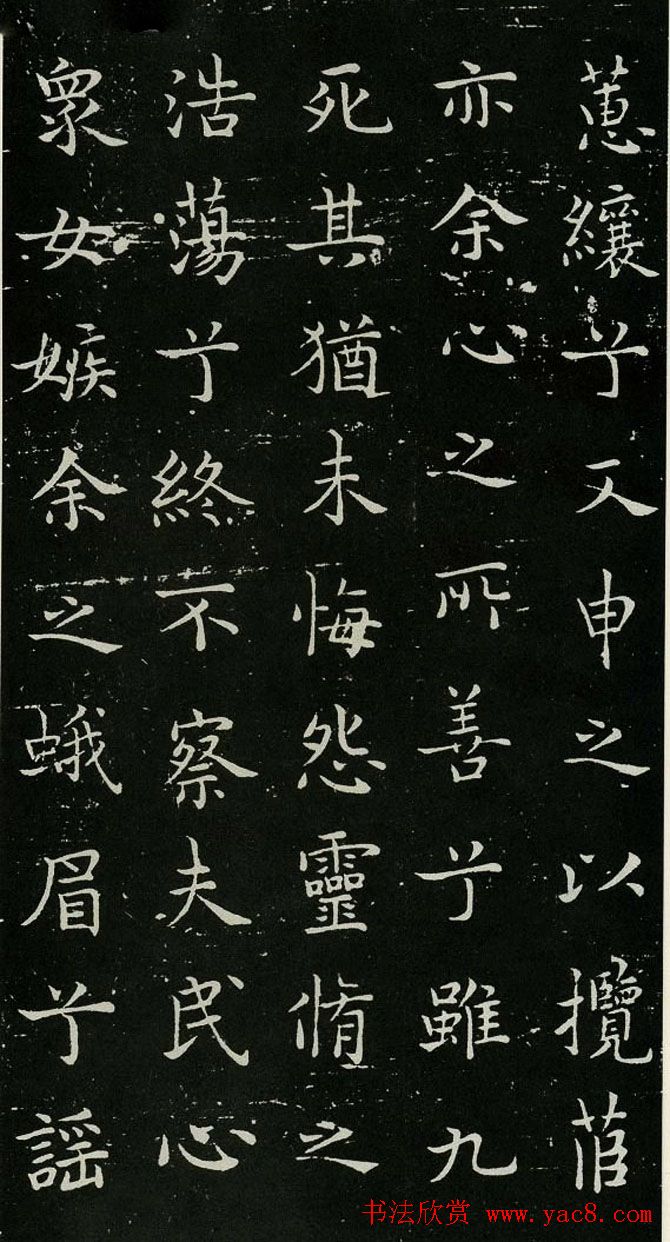 蕙纕兮又申之以攬茞
亦余心之所善兮雖九
死其猶未悔怨靈脩之
浩蕩兮終不察夫民心
衆女嫉余之蛾眉兮謡
书法欣赏 www.yac8.com